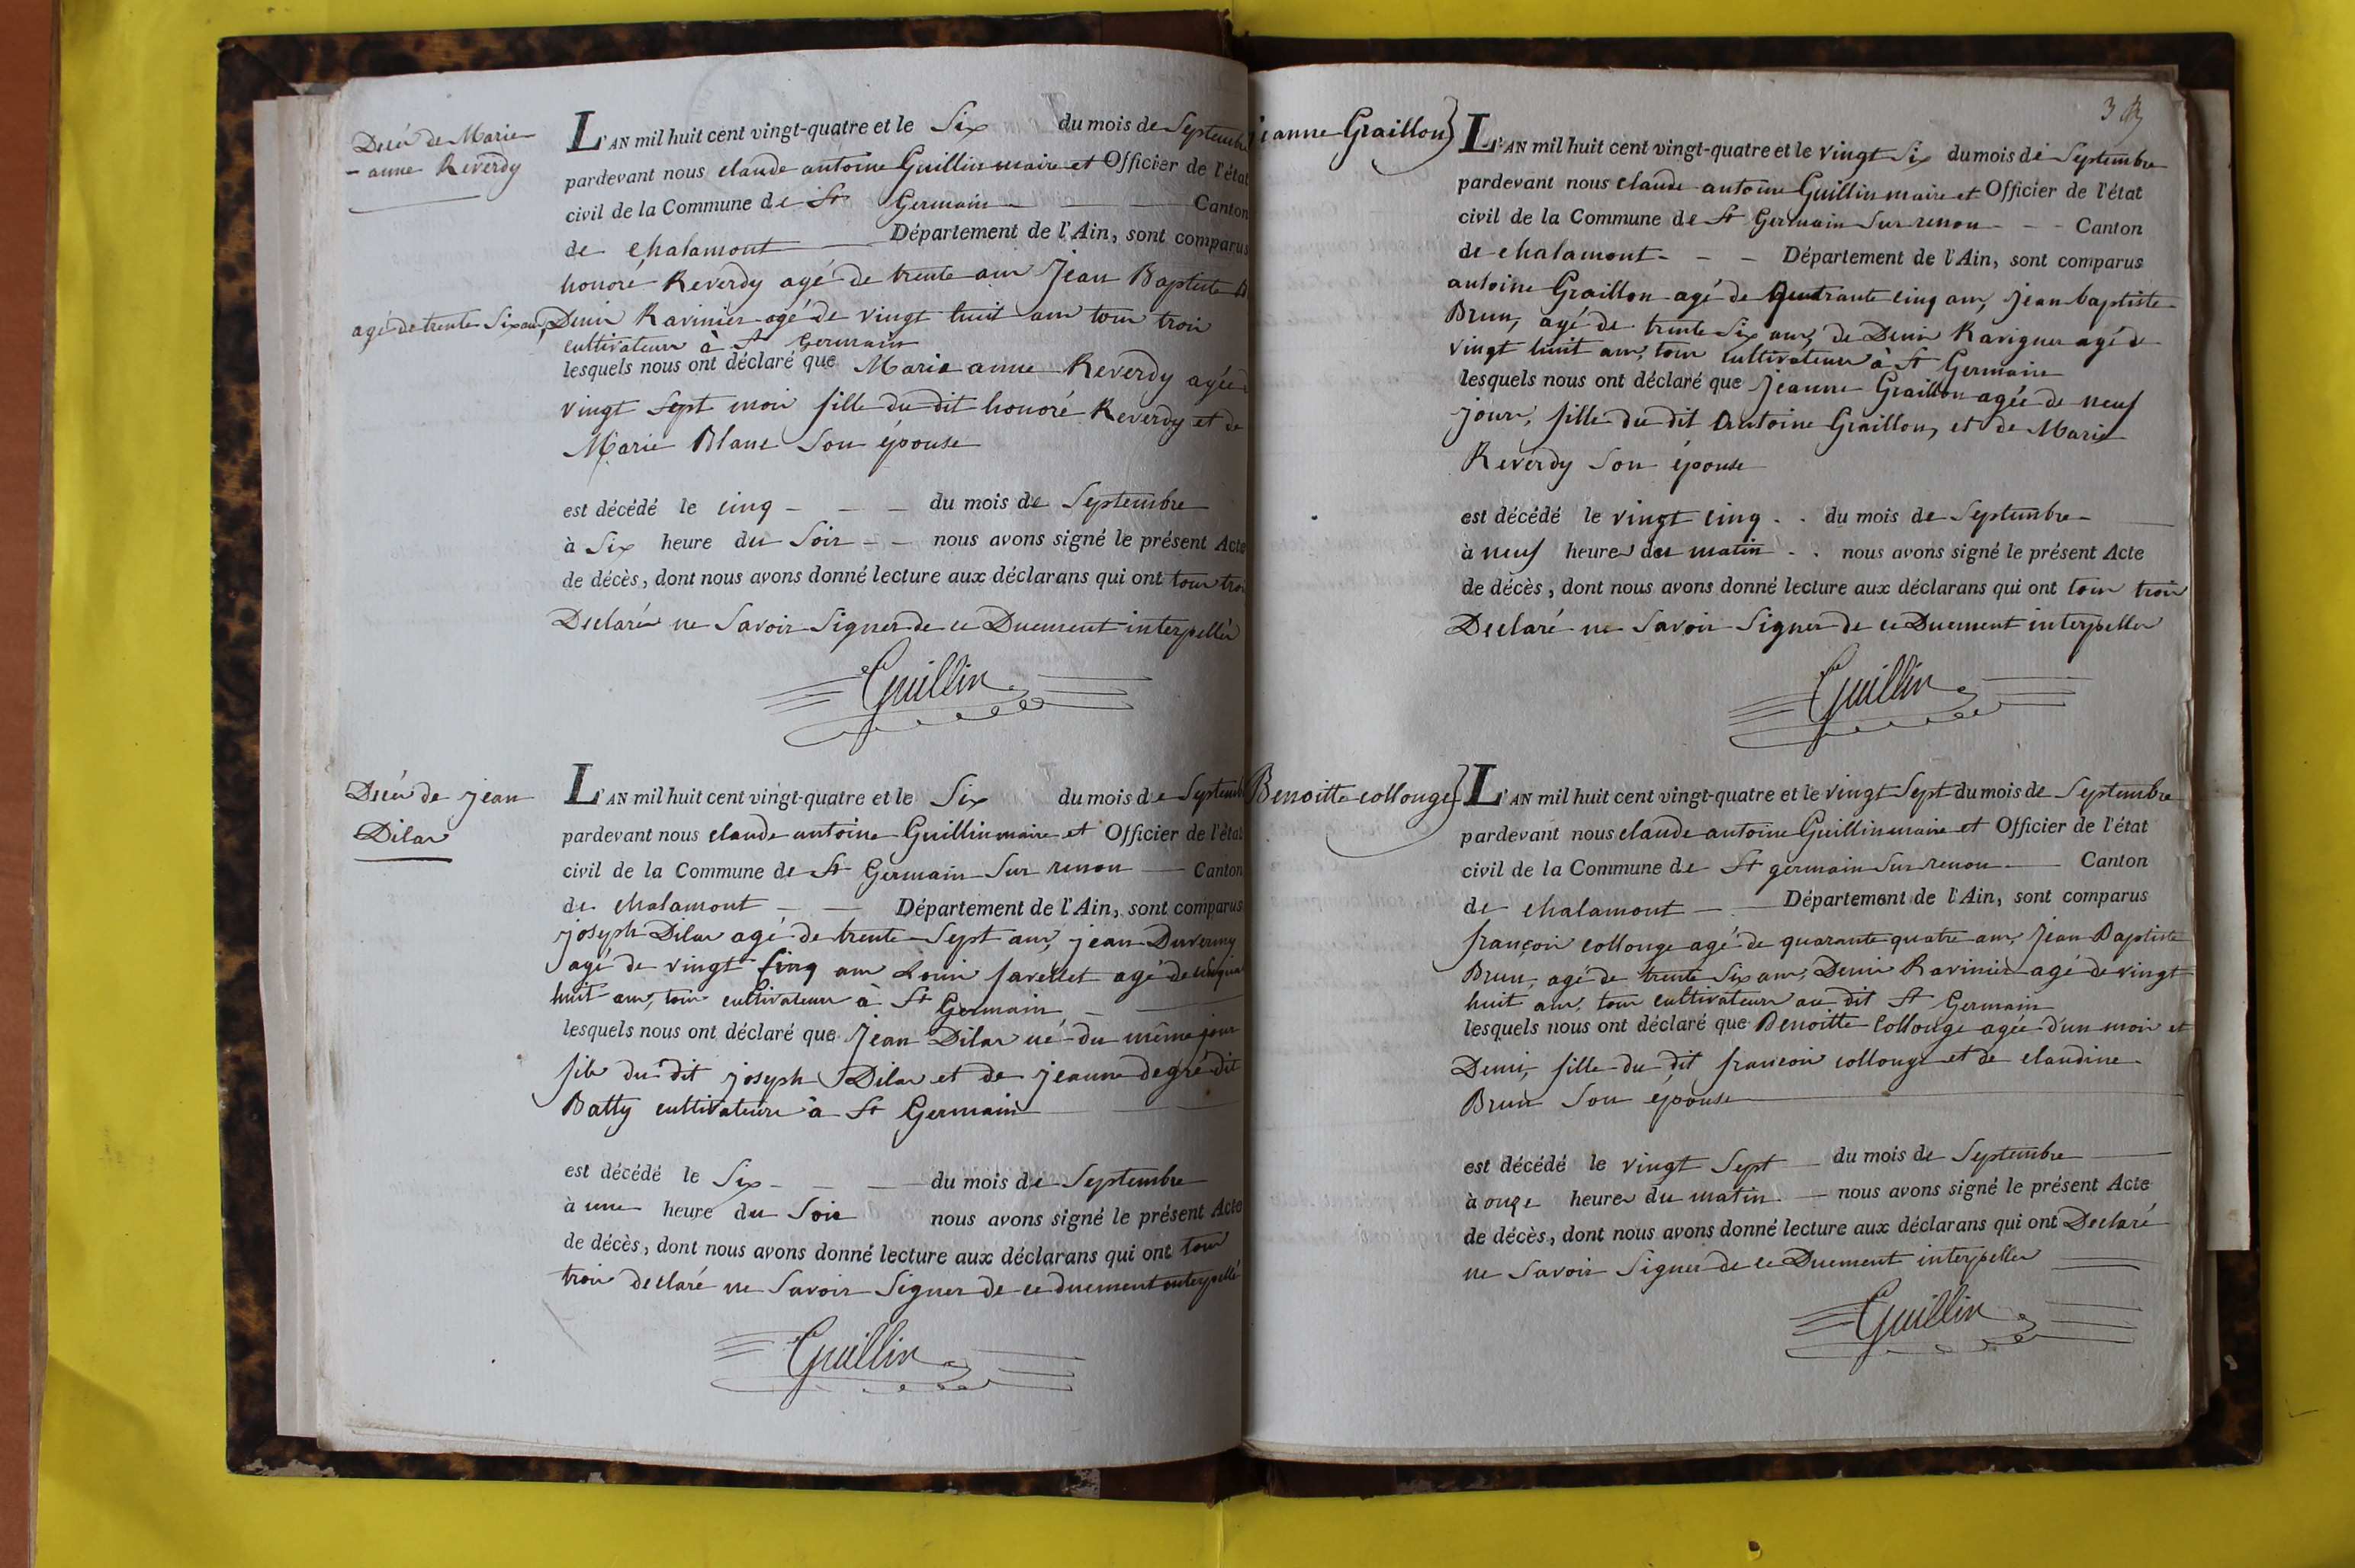 Décès de Marie
- anne Reverdy
L'AN mil huit cent vingt-quatre et le Six du mois de Septembre
pardevant nous claude antoine Guillin maire et Officier de l'état
civil de la Commune de St Germain Canton
de chalamont Département de l'Ain, sont comparus
honoré Reverdy agé de trente ans Jean Baptiste
agé de trente Six ans, Denis Ravinier agé de vingt huit ans tous trois
cultivateurs à St Germain
lesquels nous ont déclaré que Marie anne Reverdy agée
vingt Sept mois fille du dit honoré Reverdy et de
Marie Blanc Son épouse
est décédé le cinq - - - du mois de Septembre
à Six heure du Soir - - nous avons signé le présent Acte
de décès, dont nous avons donné lecture aux déclarans qui ont tous trois
Declarés ne Savoir Signer de ce Duement interpellés
Guillin
Décès de jean
Dilas
L'AN mil huit cent vingt-quatre et le Six du mois de Septembre
pardevant nous claude antoine Guillin maire et Officier de l'état
civil de la Commune de St Germain Sur renon Canton
de chalamont - - Département de l'Ain, sont comparus
joseph Dilas agé de trente Sept ans, jean Duverney
agé de vingt Cinq ans Louis favellet agé de
huit ans, tous cultivateurs à St Germain
lesquels nous ont déclaré que Jean Dilas né du même jour
fils du dit joseph Dilas et de jeanne degré dit
Batty cultivateurs à St Germain
est décédé le Six - - - du mois de Septembre
à une heure du Soir nous avons signé le présent Acte
de décès, dont nous avons donné lecture aux déclarans qui ont tous
trois declaré ne Savoir Signer de ce duement interpellé
Guillin
3
jeanne Graillon}
L'AN mil huit cent vingt-quatre et le vingt Six du mois de Septembre
pardevant nous claude antoine Guillin maire et Officier de l'état
civil de la Commune de St Germain Sur renon - - Canton
de chalamont - - - Département de l'Ain, sont comparus
antoine Graillon agé de quatrante cinq ans, jean baptiste
Brun, agé de trente Six ans, de Denis Ravignier agé de
vingt huit ans, tous cultivateurs à St Germain
lesquels nous ont déclaré que Jeanne Graillon agée de neuf
jours, fille du dit Antoine Graillon, et de Marie
Reverdy Son épouse
est décédé le vingt cinq - - du mois de Septembre -
à neuf heures du matin - - nous avons signé le présent Acte
de décès, dont nous avons donné lecture aux déclarans qui ont tous trois
Declaré ne Savoir Signer de ce Duement interpellés
Guillin
Benoitte collonge}
L'AN mil huit cent vingt-quatre et le vingt Sept du mois de Septembre
pardevant nous claude antoine Guillin maire et Officier de l'état
civil de la Commune de St germain Sur renon Canton
de chalamont - Département de l'Ain, sont comparus
françois collonge agé de quarante quatre ans, Jean Baptiste
Brun, agé de trente Six ans, Denis Ravinier agé de vingt
huit ans, tous cultivateurs au dit St Germain
lesquels nous ont déclaré que Benoitte Collonge agée d'un mois et
Demi, fille du dit francois collonge et de claudine
Brun Son épouse
est décédé le vingt Sept du mois de Septembre
à onze heures du matin - nous avons signé le présent Acte
de décès, dont nous avons donné lecture aux déclarans qui ont Declaré
ne Savoir Signer de ce Duement interpellés
Guillin